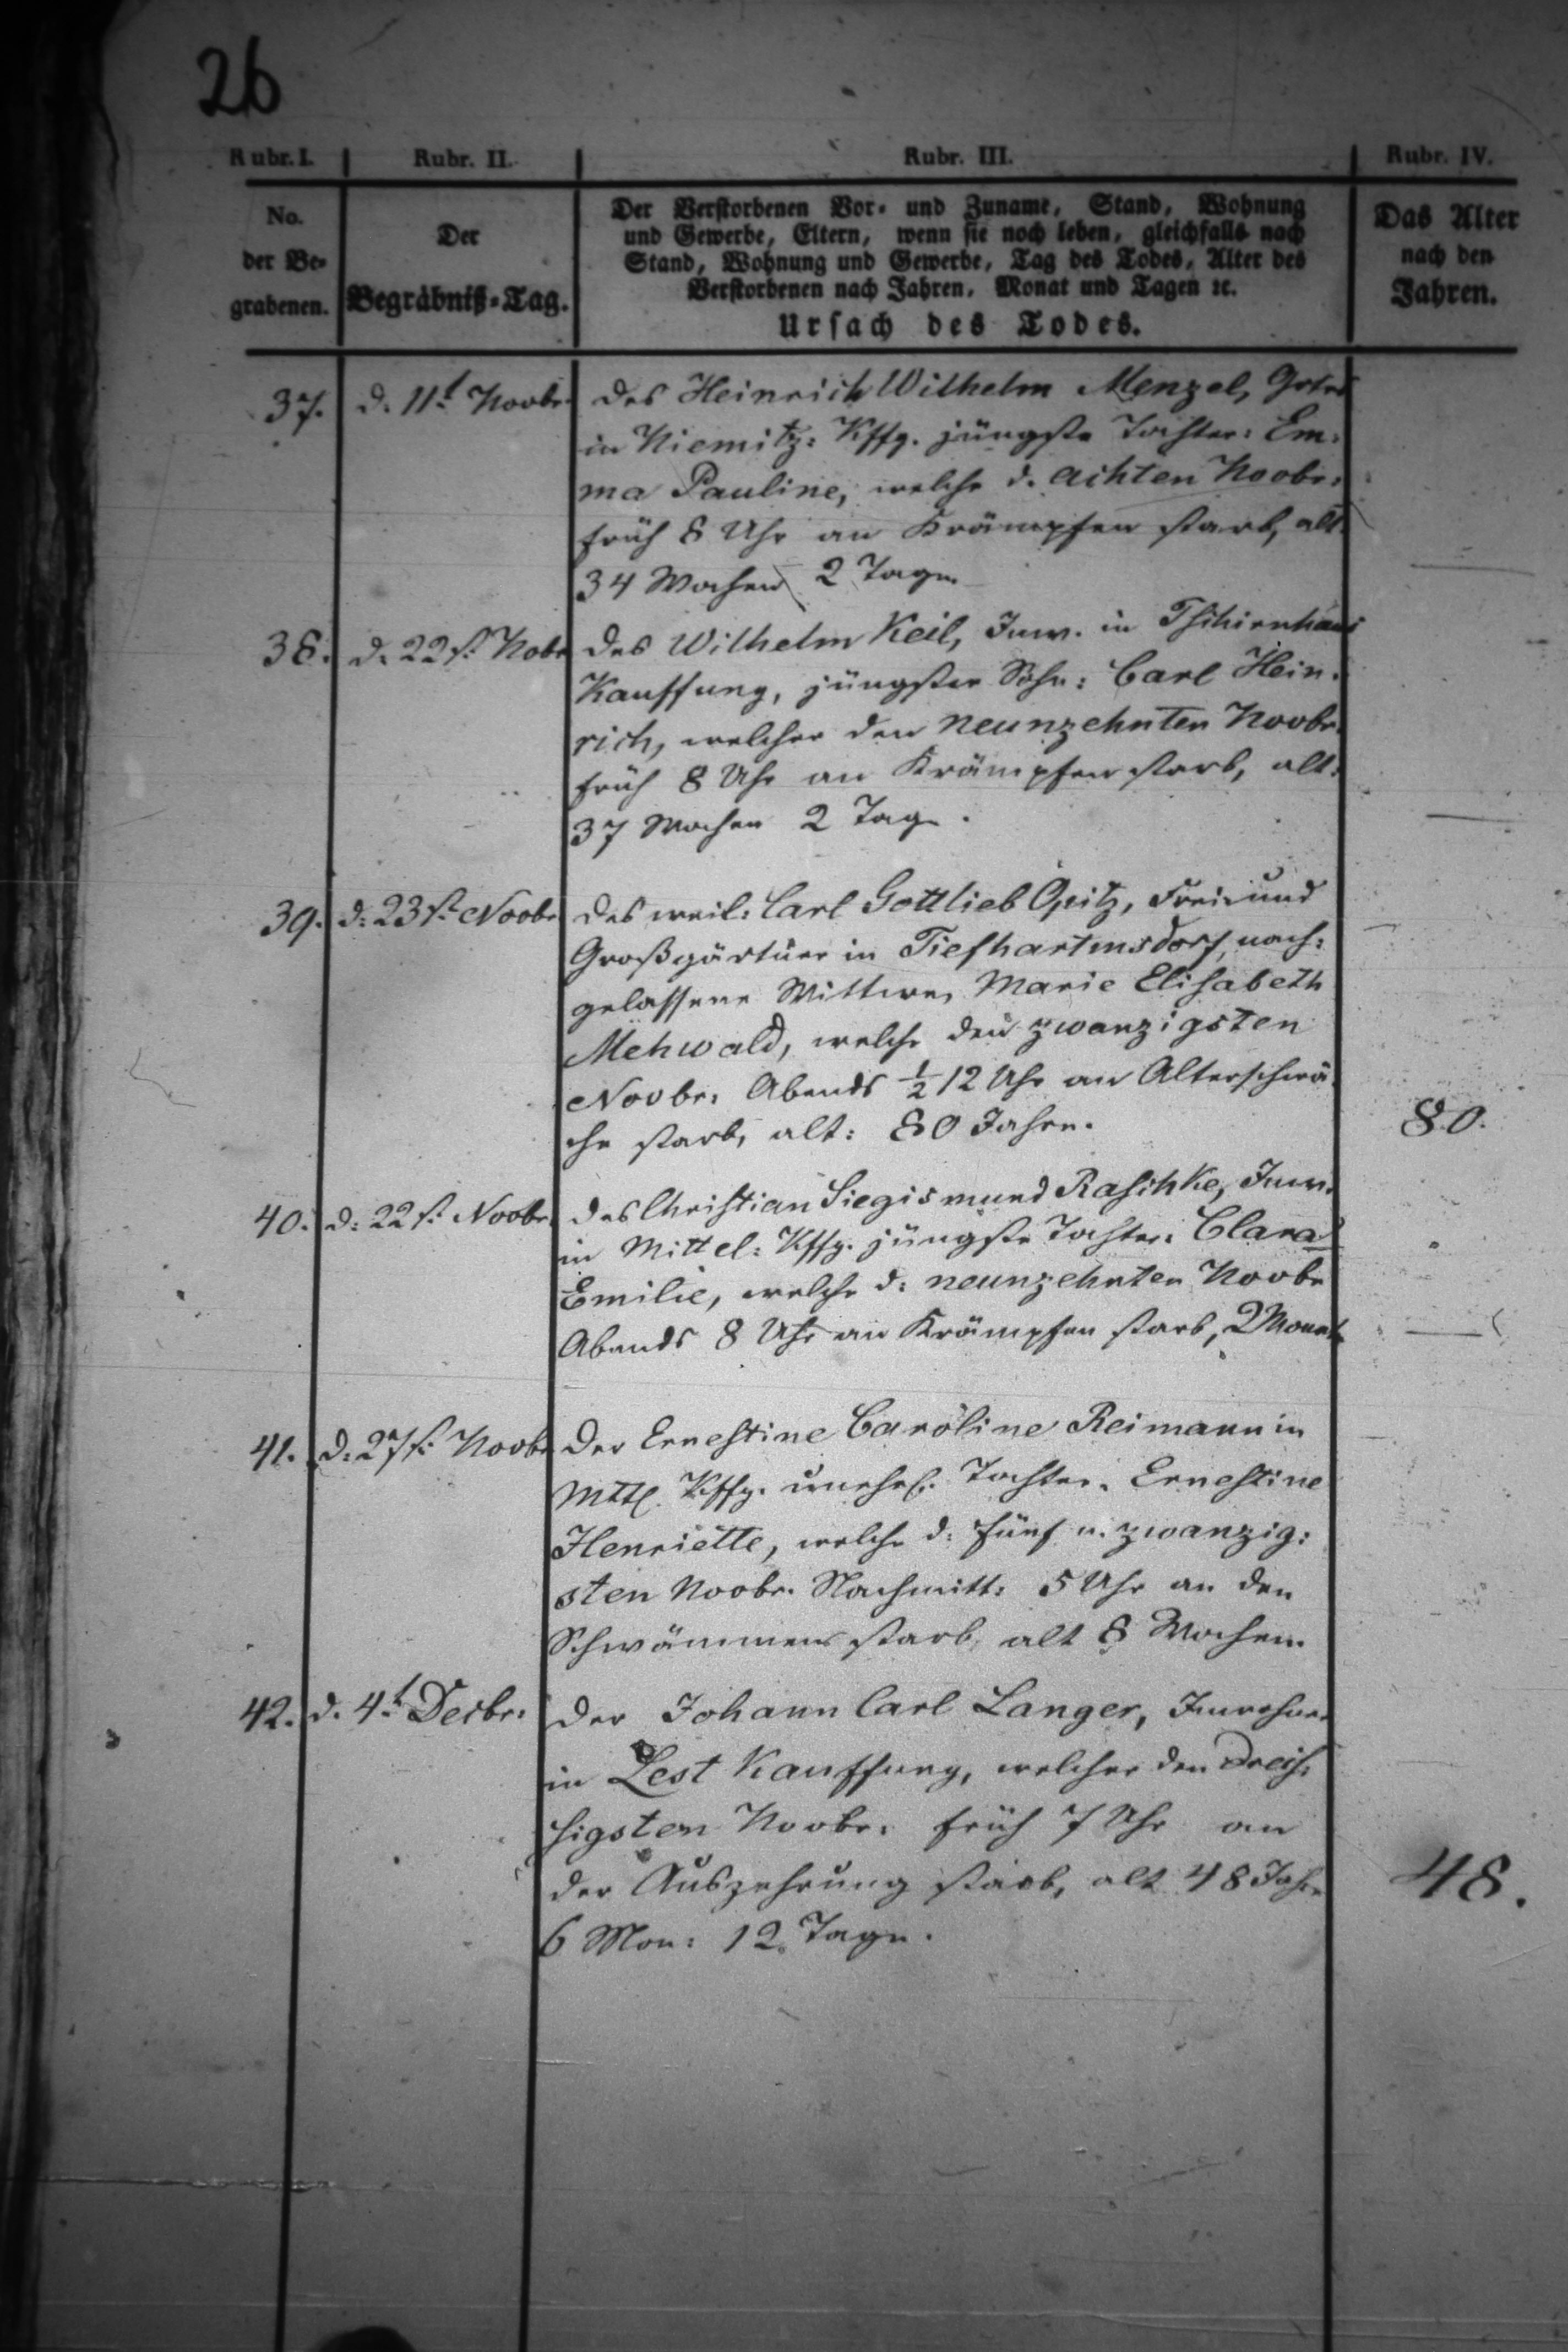 26
Rubr. I. Rubr. II. Rubr. III. Rubr. IV.
No.
der Be-
grabenen.
Der
Begräbniß-Tag.
Der Verstorbenen Vor- und Zuname, Stand, Wohnung
und Gewerbe, Eltern, wenn sie noch leben, gleichfalls nach
Stand, Wohnung und Gewerbe, Tag des Todes, Alter des
Verstorbenen nach Jahren, Monat und Tagen ꝛc.
Ursach des Todes.
Das Alter
nach den
Jahren.
37. d. 11t Novbr. des Heinrich Wilhelm Menzel,
in Niemitz: Kffg. jüngste Tochter: Em-
ma Pauline, welche d. achten Novbr.
früh 8 Uhr an Krämpfen starb, alt
34 Wochen 2 Tage
38. d. 22st. Nobr des Wilhelm Keil, Inw. in Tschirnhaus
Kauffung, jüngster Sohn: Carl Hein-
rich, welcher den neunzehnten Novbr.
früh 8 Uhr an Krämpfen starb, alt:
37 Wochen 2 Tage.
39. d. 23st. Novbr des weil. Carl Gottlieb Opitz, Frei- und
Großgärtner in Tiefhartmsdorf, nach-
gelassene Wittwe, Marie Elisabeth
Mehwald, welche den zwanzigsten
Novbr. Abends ½ 12 Uhr an Alterschwä-
che starb, alt: 80 Jahre. 80.
40. d. 22st. Novbr. des Christian Siegismund Raschke, Inw.
in Mittel: Kffg. jüngste Tochter: Clara
Emilie, welche d. neunzehnten Novbr
Abends 8 Uhr an Krämpfen starb, 2 Monat
41. d. 27st. Novbr der Ernestine Caroline Reimann in
Mttl. Kffg. unehel. Tochter. Ernestine
Henriette, welche d. fünf u. zwanzig-
sten Novbr. Nachmitt. 5 Uhr an den
Schwämmen starb, alt 8 Wochen.
42. d. 4t Decbr. Der Johann Carl Langer, Inwohner
in Lest Kauffung, welcher den dreis-
sigsten Novbr. früh 7 Uhr an
der Auszehrung starb, alt 48 Jahr 48.
6 Mon: 12. Tage.